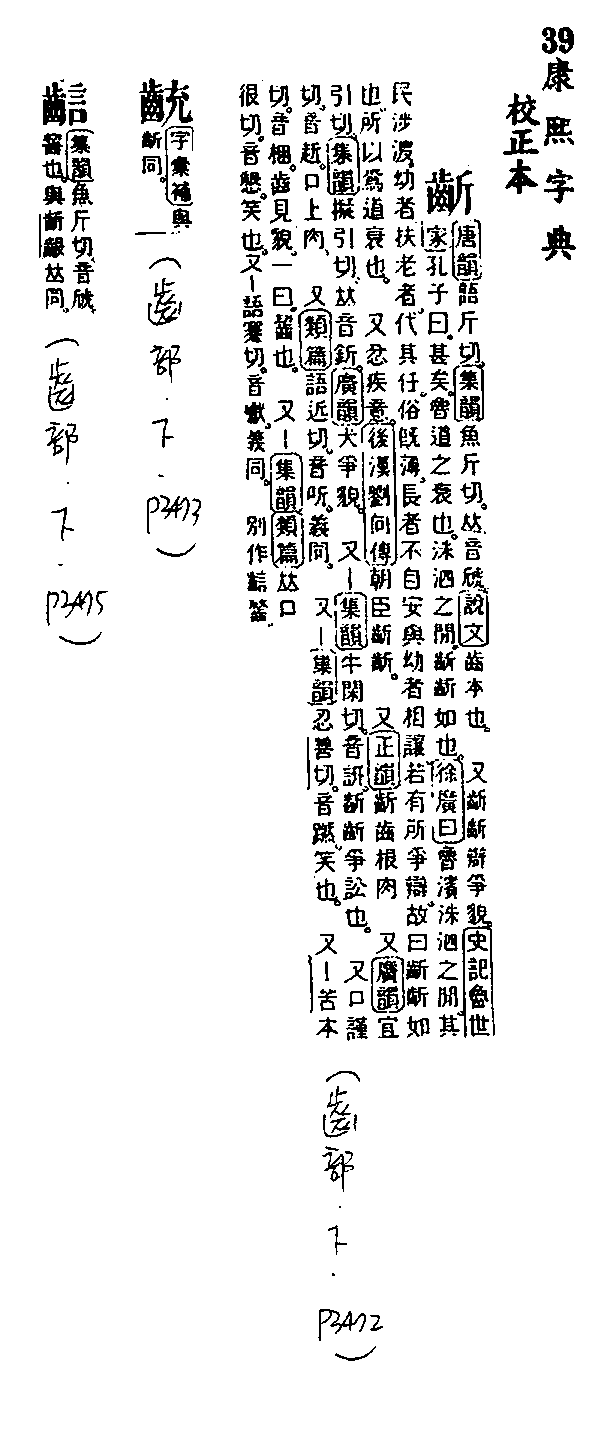 39康熙字典
校正本
齗
唐韻語斤切。集韻魚斤切。𠀤音𪗨。說文齒本也。 又齗齗辯爭貌。史記魯世
家孔子曰。甚矣。魯道之衰也。洙泗之閒。齗齗如也。徐廣曰魯濱洙泗之閒。其
民涉渡。幼者扶老者。代其任。俗旣薄。長者不自安與幼者相讓若有所爭辯。故曰齗齗如
也。所以爲道衰也。 又忿疾意。後漢劉向傳朝臣齗齗。 又正韻齗齒根肉 又廣韻宜
引切。集韻擬引切。𠀤音釿。廣韻犬爭貌。 又丨集韻牛閑切。音訮。齗齗爭訟也。 又口謹
切。音赾。口上肉。 又類篇語近切。音听。義同。 又丨集韻忍善切。音蹨。笑也。 又丨苦本
切。音梱。齒見貌。一曰。齧也。 又丨集韻類篇𠀤口
很切。音懇。笑也。又丨語蹇切。音巘。義同。 別作
(齒部.下.P3472)
字彙補與
齗同。
(齒部.下.P3473)
集韻魚斤切。音
也。與齗 𠀤同。
(齒部.下.P3475)